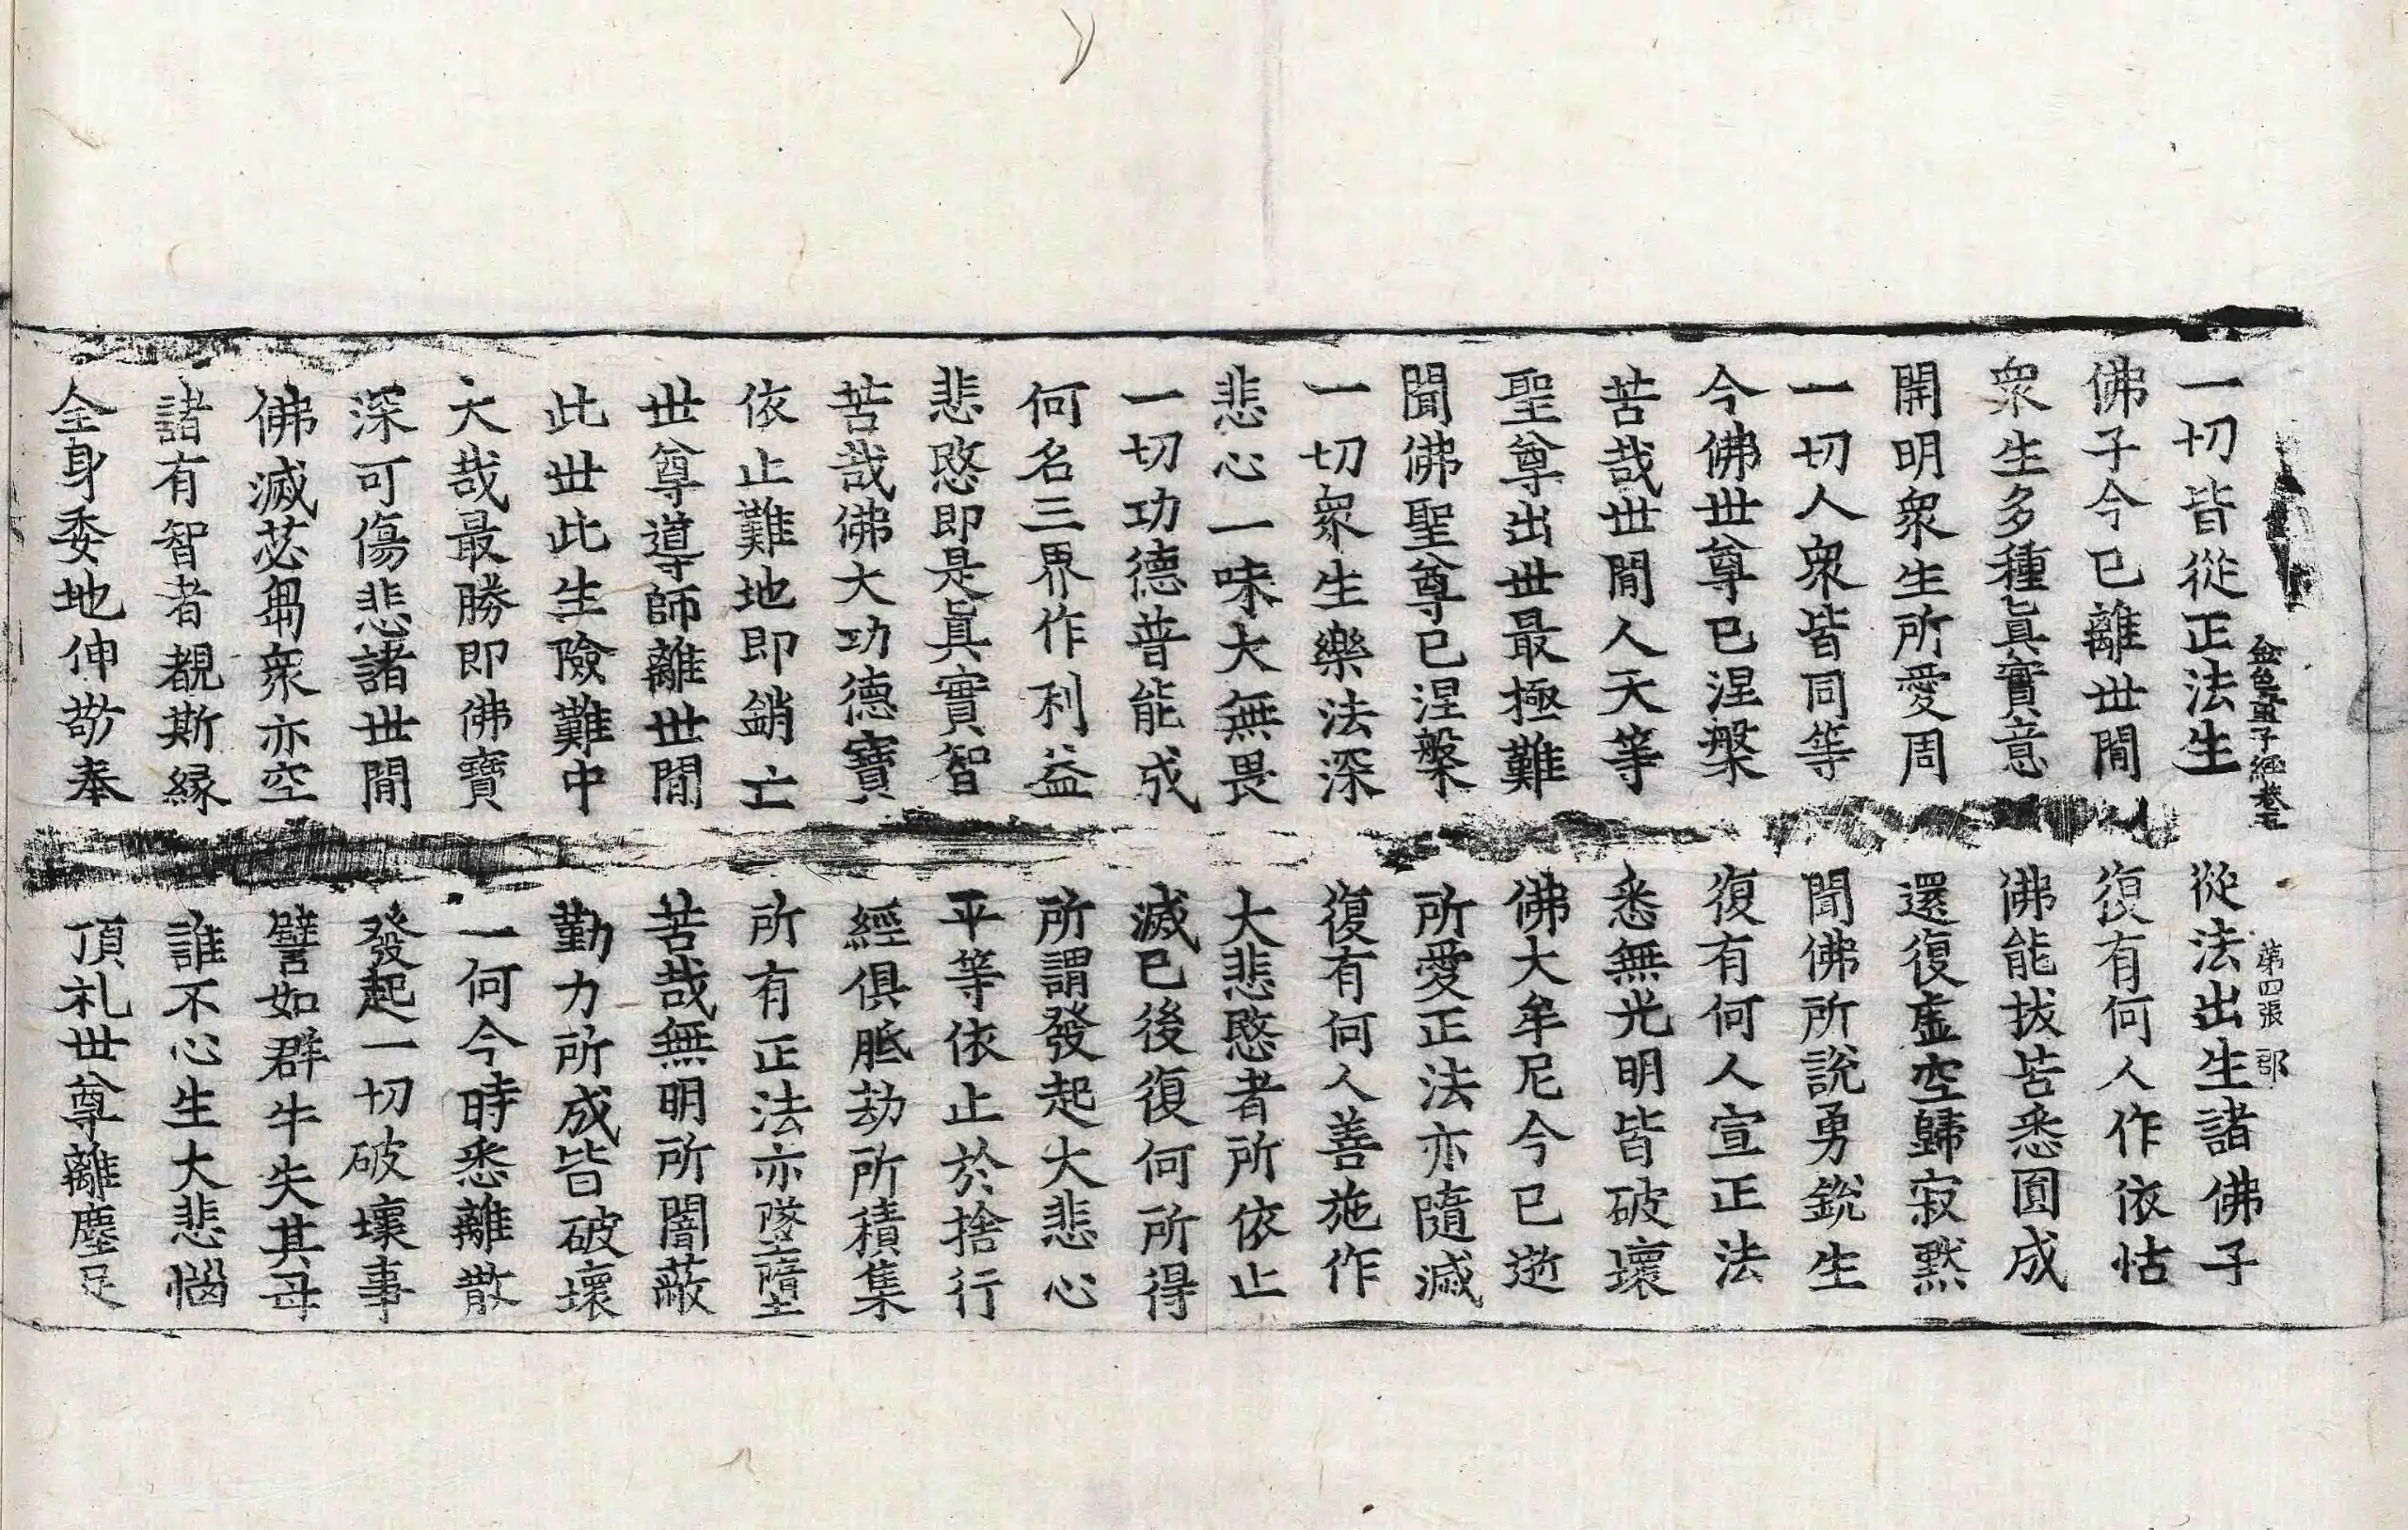 金色童子經卷五　第四張　郡
一切皆從正法生　從法出生諸佛子
佛子今已離世間　復有何人作依怙
衆生多種眞實意　佛能拔苦悉圓成
開明衆生所愛周　還復虛空歸寂黙
一切人衆皆同等　聞佛所說勇銳生
今佛世尊已涅槃　復有何人宣正法
苦哉世間人天等　悉無光明皆破壞
聖尊出世最極難　佛大牟尼今已逝
聞佛聖尊已涅槃　所愛正法亦隨滅
一切衆生樂法深　復有何人善施作
悲心一味大無畏　大悲愍者所依止
一切功德普能成　滅已後復何所得
何名三界作利益　所謂發起大悲心
悲愍即是眞實智　平等依止於捨行
苦哉佛大功德寶　經俱胝劫所積集
依止難地即銷亡　所有正法亦墜墮
世尊導師離世間　苦哉無明所闇蔽
此世此生險難中　勤力所成皆破壞
大哉最勝即佛寶　一何今時悉離散
深可傷悲諸世間　發起一切破壞事
佛滅苾芻衆亦空　譬如群牛失其母
諸有智者覩斯縁　誰不心生大悲惱
全身委地伸敬奉　頂礼世尊離塵足